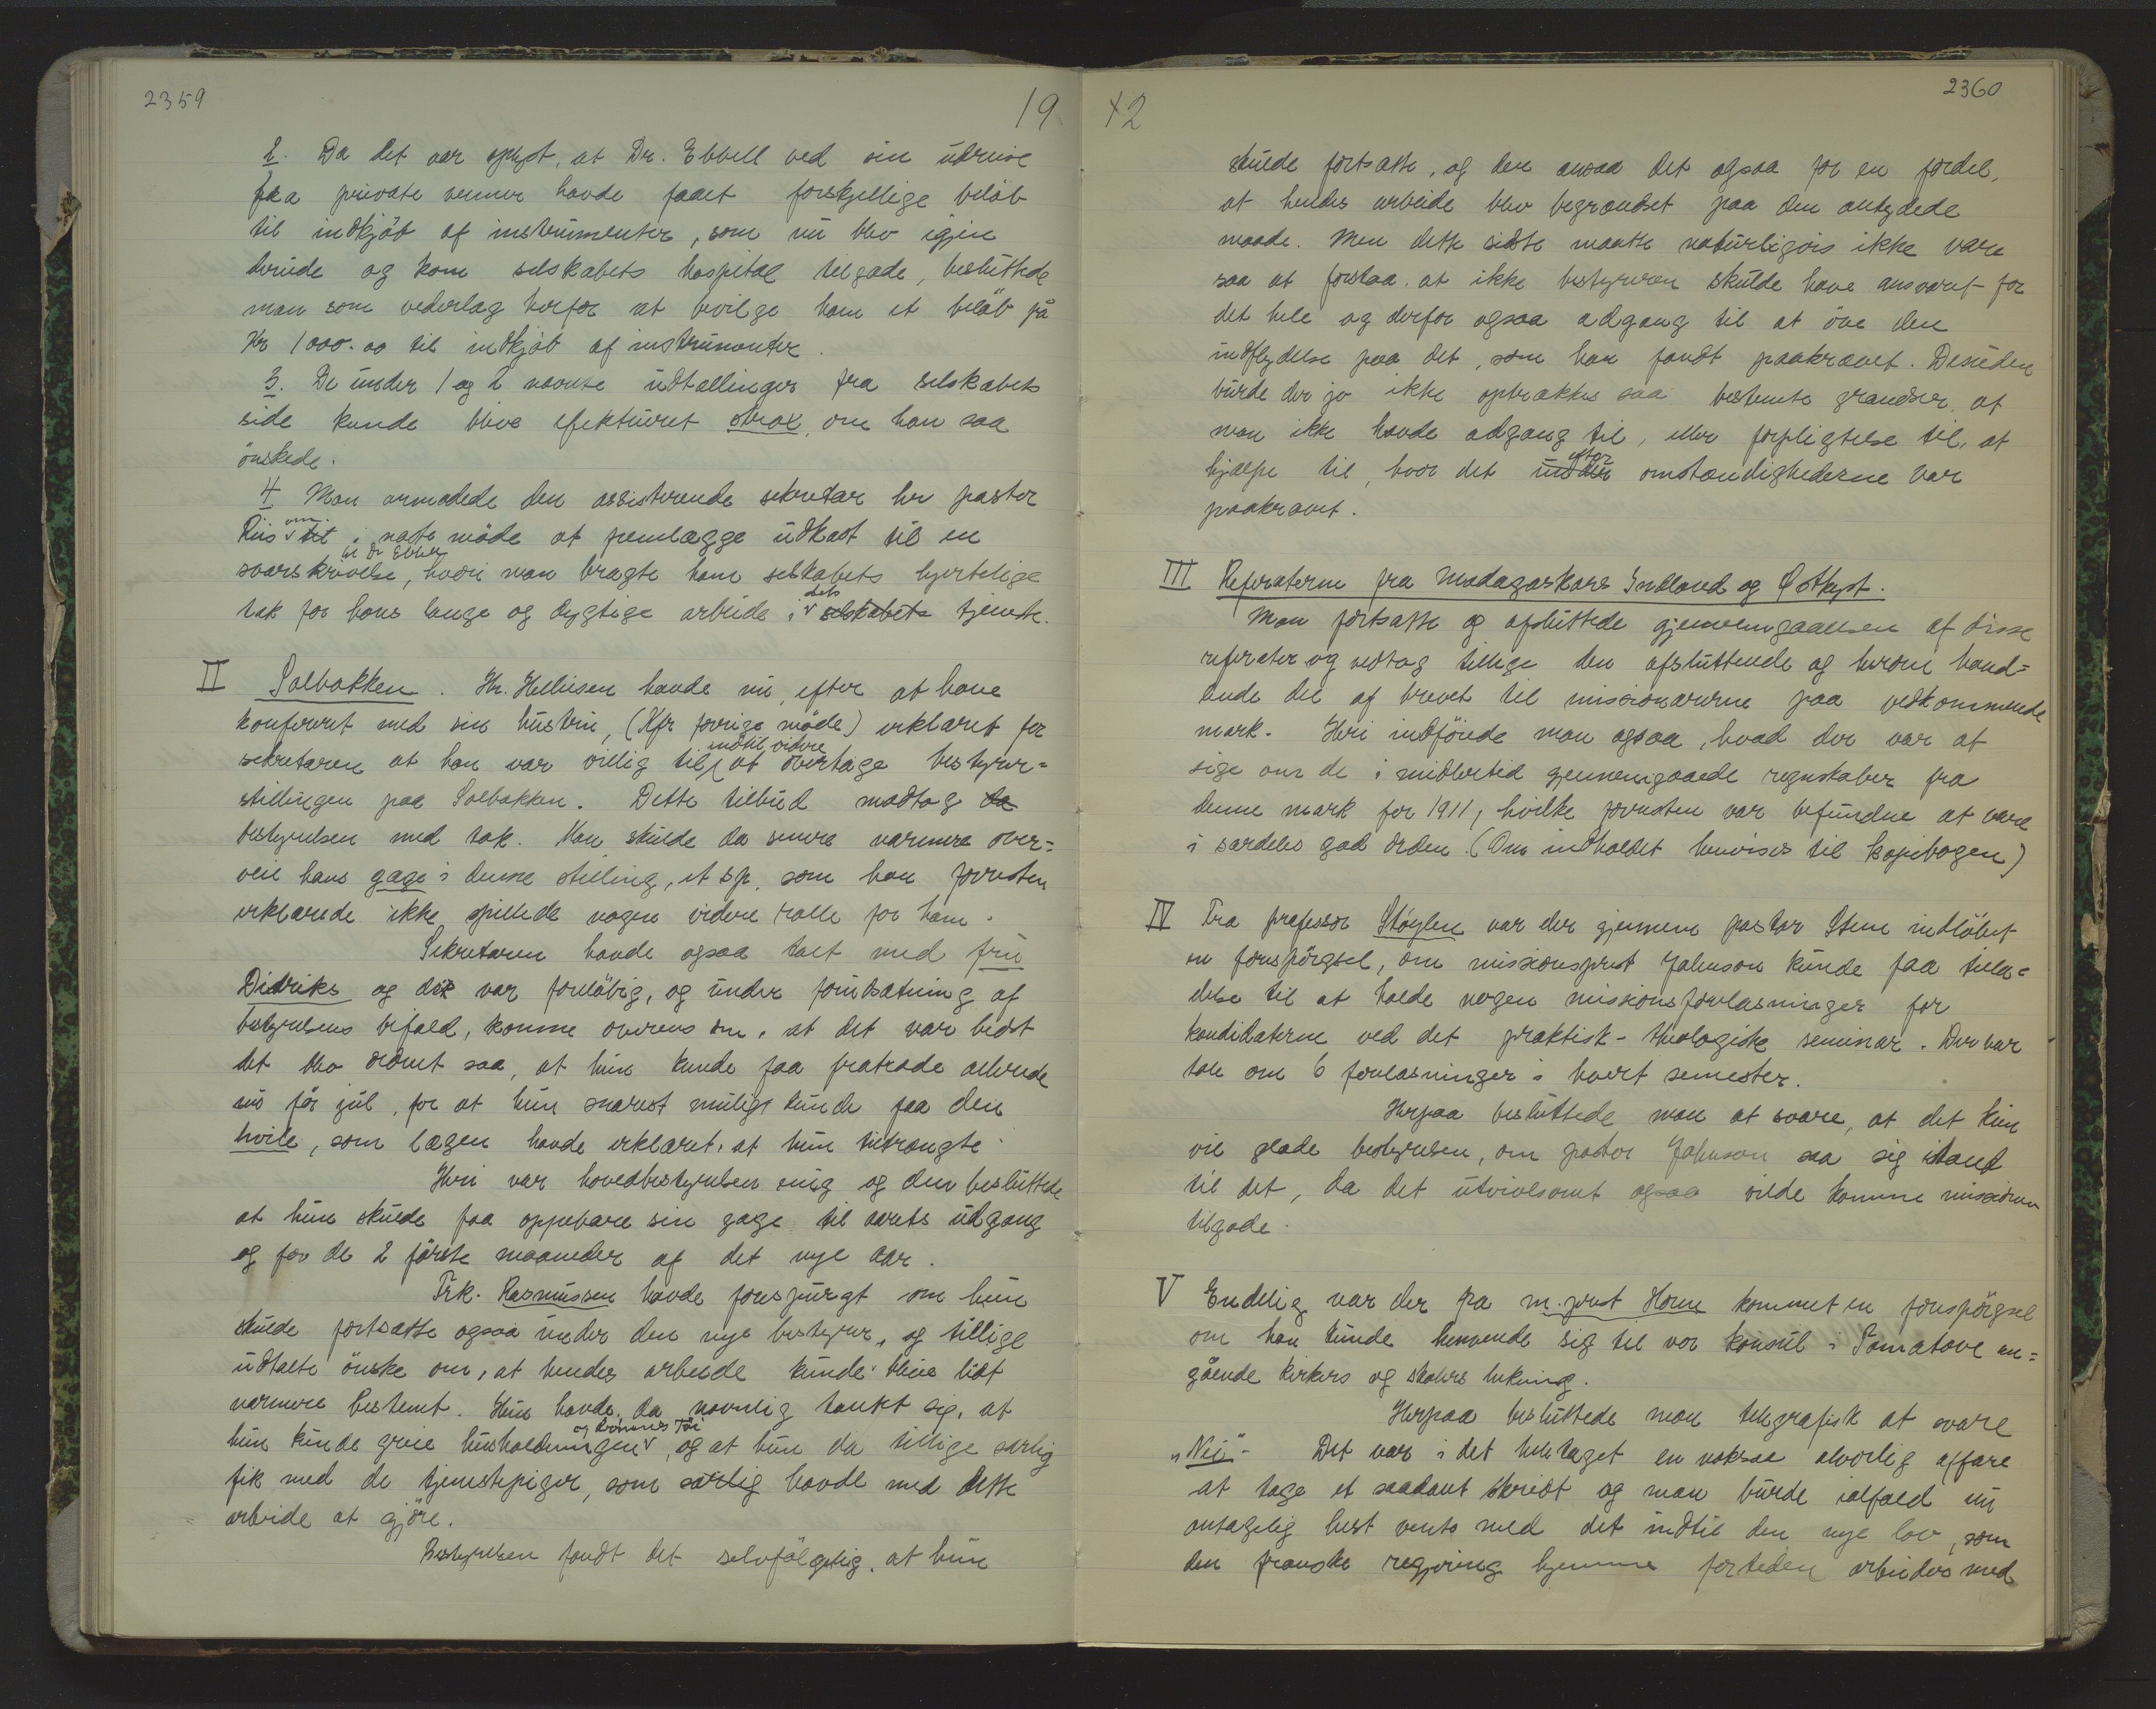 2359
19
2. Da det var oplyst, at Dr. Ebbell ved sin udreise
fra private venner havde faaet forskjellige beløb
til indkjöb af instrumenter, som nu blev igjen
derude og kom selskabets hospital tilgode, besluttede
man som vederlag herfor at bevilge ham et belöb på
Kr 1000.00 til indkjöb af instrumenter.
3. De under 1 og 2 nævnte udtællinger fra selskabets
side kunde blive efektueret strax, om han saa
önskede.
4 Man anmodede den assisterende sekretær hr pastor
Riis om til i næste möde at fremlægge udkast til en
svarskrivelse, til Dr Ebbell hvori man bragte ham selskabets hjertelige
tak for hans lange og dygtige arbeide i dets selskabets tjeneste.
II Solbakken. Hr. Helliesen havde nu, efter at have
konfereret med sin hustru, (Kfr forrige möde) erklæret for
sekretæren at han var villig til indtil videre at overtage bestyrer=
stillingen paa Solbakken. Dette tilbud modtog da
bestyrelsen med tak. Man skulde da senere nærmere over=
veie hans gage i denne stilling, et sp. som han forresten
erklærede ikke spillede nogen videre rolle for ham.
Sekretæren havde ogsaa talt med fru
Didriks og det var foreløbig, og under forudsætning af
bestyrelsens bifald, komne overens om, at det var bedst
det blev ordnet saa, at hun kunde faa fratræde allerede
nu för jul, for at hun snarest muligt kunde faa den
hvile, som lægen havde erklæret, at hun tiltrængte.
Heri var hovedbestyrelsen enig og den besluttede
at hun skulde faa oppebære sin gage til aarets udgang
og for de 2 förste maaneder af det nye aar.
Frk. Rasmussen havde forespurgt om hun
skulde fortsætte ogsaa under den nye bestyrer, og tillige
udtalte önske om, at hendes arbeide kunde blive lidt
nærmere bestemt. Hun havde da navnlig tænkt sig, at
hun kunde greie husholdningen og Börnenes Töi, og at hun da tillige særlig
fik med de tjenestepiger, som særlig havde med dette
arbeide at gjöre.
Bestyrelsen fandt det selvfölgelig, at hun
42
2360
skulde fortsætte, og den ansaa det ogsaa for en fordel,
at hendes arbeide blev begrændset paa den antydede
maade. Men dette sidste maatte naturligvis ikke være
saa at forstaa, at ikke bestyreren skulde have ansvaret for
det hele og derfor ogsaa adgang til at öve den
indflydelse paa det, som han fandt paakrævet. Desuden
burde der jo ikke optrækkes saa bestemte grændser, at
man ikke havde adgang til, eller forpligtelse til, at
hjælpe til, hvor det under efter omstændighederne var
paakrævet.
III Referaterne fra Madagaskars Indland og Östkyst.
Man fortsatte og afsluttede gjennemgaaelsen af disse
referater og vedtog tillige den afsluttende og herom hand=
lende del af brevet til missionærerne paa vedkommende
mark. Heri indförde man ogsaa, hvad der var at
sige om de i midlertid gjennemgaaede regnskaber fra
denne mark for 1911, hvilke forresten var befundne at være
i særdeles god orden. (Om indholdet henvises til kopibogen)
IV Fra professor Støylen var der gjennem pastor Steen indlöbet
en forespörgsel, om missionsprest Johnson kunde faa tilla=
delse til at holde nogen missionsforelæsninger for
kandidaterne ved det praktisk-theologiske seminar. Der var
tale om 6 forelæsninger i hvert semester.
Herpaa besluttede man at svare, at det kun
vil glæde bestyrelsen, om pastor Johnson saa sig istand
til det, da det utvivlsomt ogsaa vilde komme missionen
tilgode.
V Endelig var der fra m.prest Horne kommet en forespörgsel
om han kunde henvende sig til vor konsul i Tamatave an=
gående kirkers og skolers lukning.
Herpaa besluttede man telegrafisk at svare
„Nei“. Det var i det heletaget en noksaa alvorlig affære
at tage et saadant skridt og man burde ialfald nu
antagelig helst vente med det indtil den nye lov, som
den franske regjering hjemme fortiden arbeider med